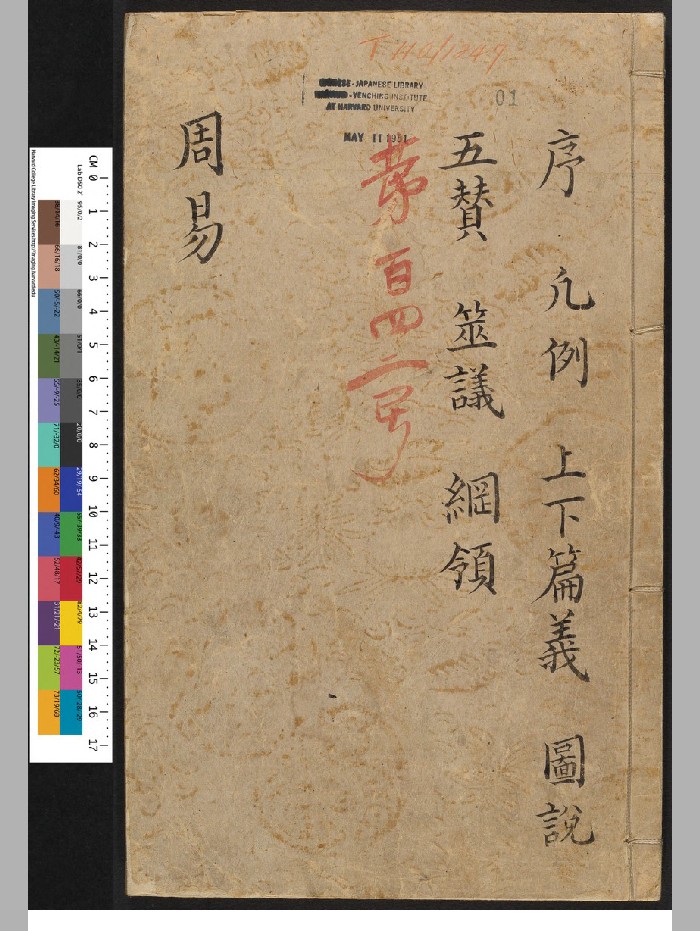 序 凡例 上下篇義 圖說
五賛 筮議 綱領
第百四二号
周易
-JAPANESE LIBRARY
-YENCHING INSTITUTE
AT HARVARD UNIVERSITY
MAY 11 1951
01
CM 0 1 2 3 4 5 6 7 8 9 10 11 12 13 14 15 16 17